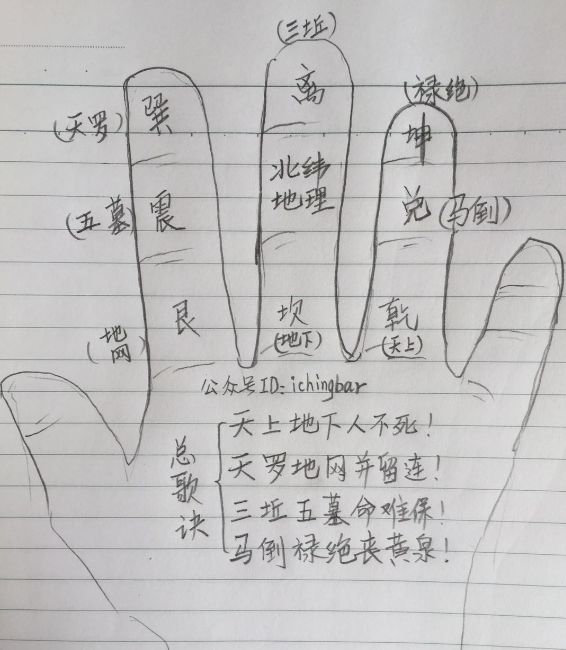 (三坵)
离
(禄绝)
巽
(天罗)
坤
北纬
地理
震
(五墓)
兑(马倒)
艮
(地网)
坎
(地下)
乾
(天上)
公众号ID:ichingbar
总歌诀
天上地下人不死!
天罗地网并留连!
三坵五墓命难保!
马倒禄绝丧黄泉!